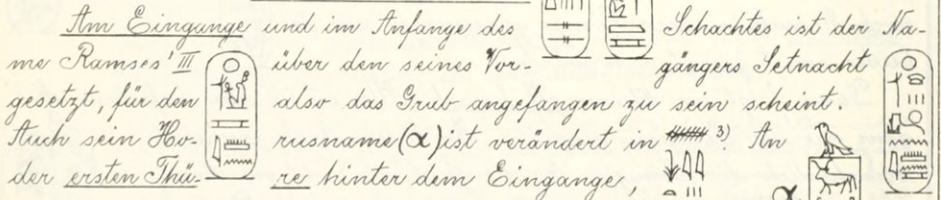 Am Eingange und im Anfange des Schachtes ist der Na-
me Ramses' III über den seines Vor- gängers Setnacht
gesetzt, für den also das Grab angefangen zu sein scheint.
Auch sein Ho- rusname (α) ist verändert in 3) An
der ersten Thü- re hinter dem Eingange, α